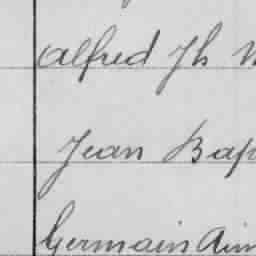 Alfred Jh
Jean Bap
Germain Aim